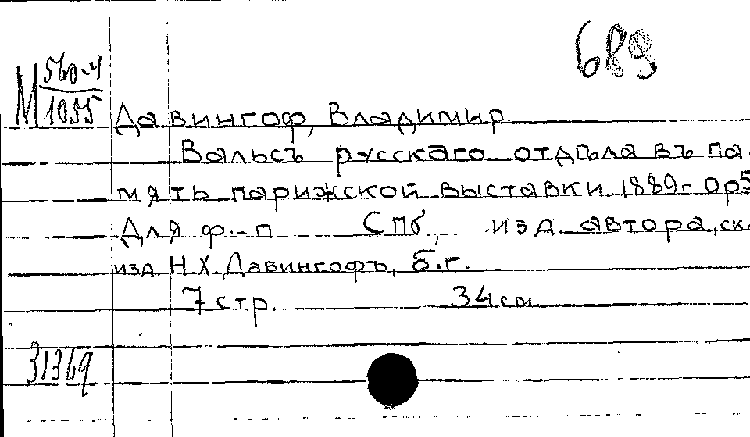 689
М 560-4
1055
Давингоф, Владимир
Вальсъ русскаго отдѣла въ па-
мять парижской выставки 1889г. Ор5
Для ф.-п Спб, изд. автора, ск.
изд Н.Х. Давингофъ, б.г.
7 стр. 34 см
31369